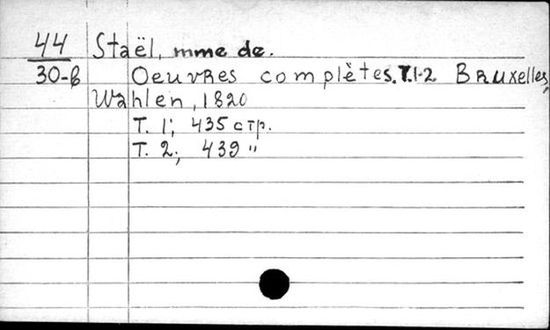 44 Staël, mme de.
30-в Oeuvres complètes. T.1-2 Bruxelles,
Wahlen, 1820
T. 1; 435 стр.
T. 2; 439 "